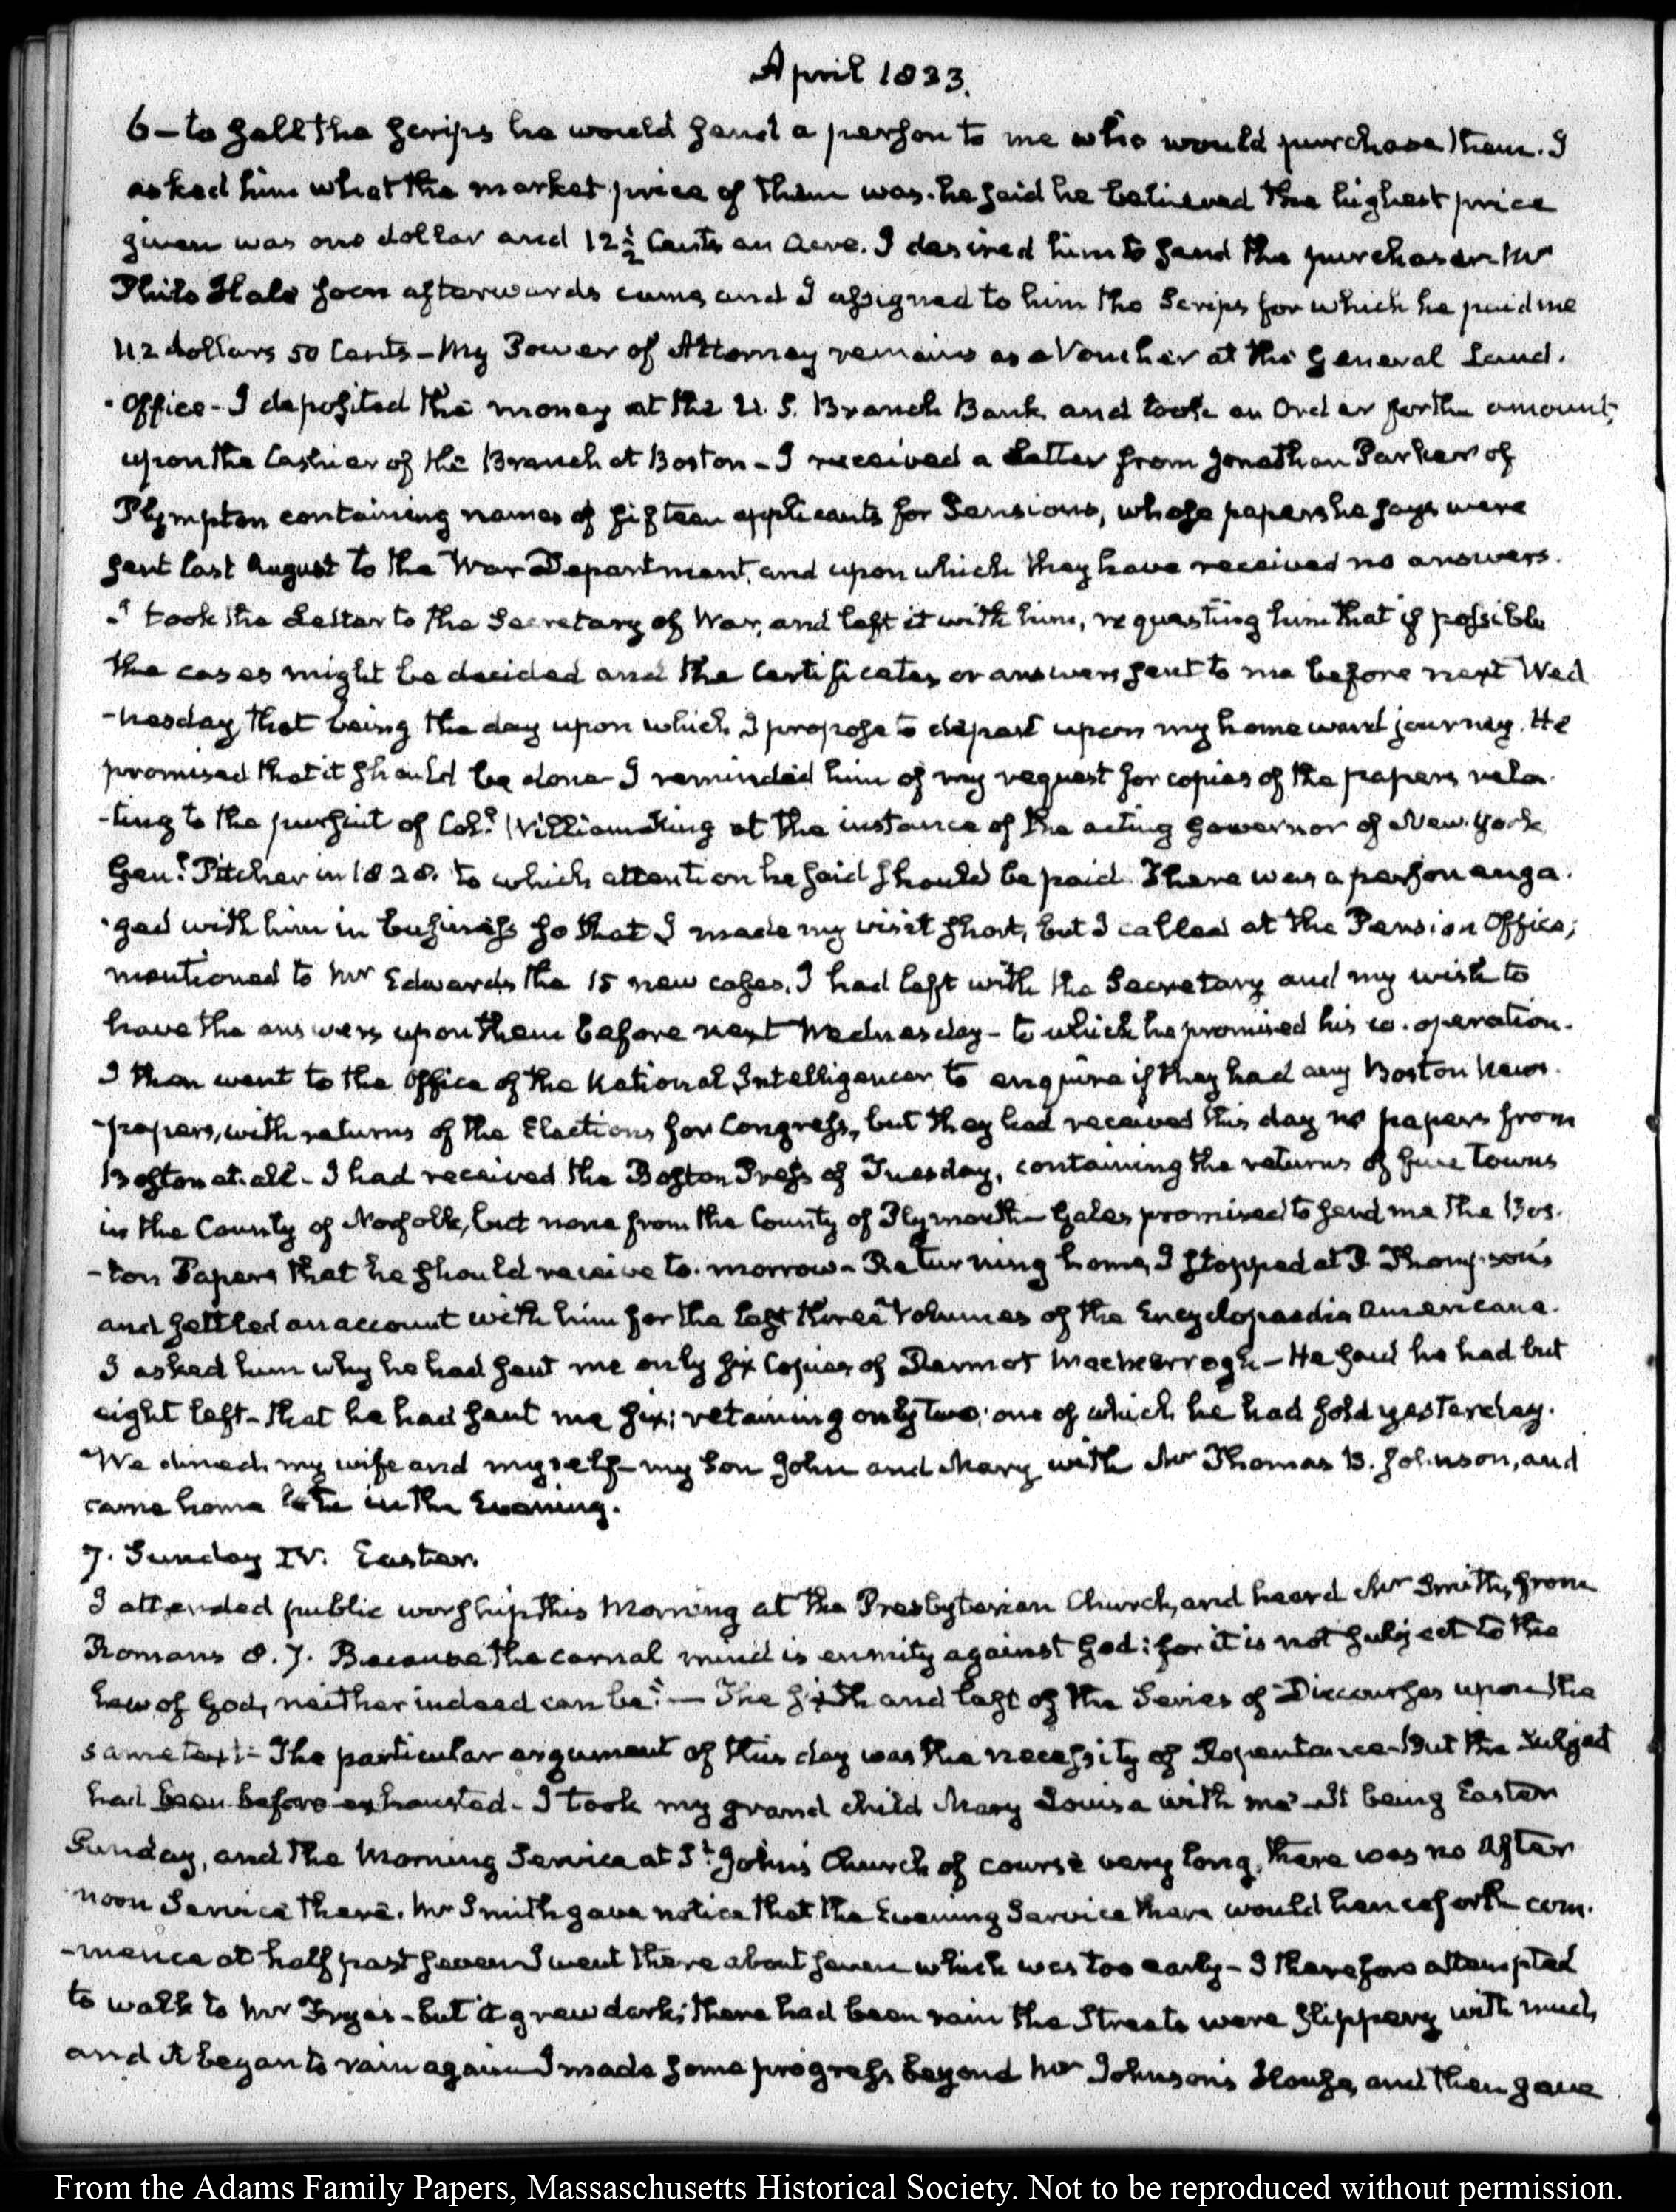 April 1833.
6 – to sell the scrips he would send a person to me who would purchase them. I
asked him what the market price of them was. he said he believed the highest price
given was one dollar and 12½ Cents an Acre. I desired him to send the purchaser. Mr
Philo Hale soon afterwards came, and I assigned to him the Scrips for which he paid me
112 dollars 50 Cents – My Power of Attorney remains as a Voucher at the General Land.
-Office – I deposited the money at the U. S. Branch Bank and took an Order for the amount,
upon the Cashier of the Branch at Boston – I received a Letter from Jonathan Parker of
Plympton containing names of fifteen applicants for Pensions, whose papers he says were
sent last August to the War Department, and upon which they have received no answers.
I took the Letter to the Secretary of War, and left it with him, requesting him that if possible
the cases might be decided and the Certificates or answers sent to me before next Wed
-nesday, that being the day upon which I propose to depart upon my homeward journey. He
promised that it should be done – I reminded him of my request for copies of the papers rela-
-ting to the pursuit of Coll. William King at the instance of the acting Governor of New York
Genl. Pitcher in 1828. to which attention he said should be paid. There was a person enga-
-ged with him in business so that I made my visit short, but I called at the Pension Office;
mentioned to Mr Edwards the 15 new cases, I had left with the Secretary and my wish to
have the answers upon them before next Wednesday – to which he promised his co-operation.
I then went to the Office of the National Intelligencer, to enquire if they had any Boston News-
-papers, with returns of the Elections for Congress, but they had received this day no papers from
Boston at all – I had received the Boston Press of Tuesday, containing the returns of five Towns
in the County of Norfolk, but none from the County of Plymouth – Gales promised to send me the Bos-
-ton Papers that he should receive to-morrow – Returning home, I stopped at P. Thompson's
and settled an account with him for the last three Volumes of the Encyclopaedia Americana.
I asked him why he had sent me only six Copies of Dermot MacMorrogh – He said he had but
eight left – that he had sent me six; retaining only two; one of which he had sold yesterday.
We dined, my wife and myself – my Son John and Mary with Mr Thomas B. Johnson, and
came home late in the Evening.
7. Sunday IV. Easter.
I attended public worship this Morning at the Presbyterian Church, and heard Mr Smith, from
Romans 8. 7. Because the carnal mind is enmity against God: for it is not subject to the
Law of God, neither indeed can be." – The sixth and last of the Series of Discourses upon the
same text – The particular argument of this day was the necessity of Repentance – But the Subject
had been before exhausted – I took my grand child Mary Louisa with me – It being Easter
Sunday, and the Morning Service at St. John's Church of course very long, there was no After
noon Service there. Mr Smith gave notice that the Evening Service there would henceforth com-
-mence at half past seven – I went there about seven which was too early – I therefore attempted
to walk to Mr Frye's – but it grew dark; there had been rain the Streets were slippery with mud,
and it began to rain again – I made some progress beyond Mr Johnson's House, and then gave
From the Adams Family Papers, Massachusetts Historical Society. Not to be reproduced without permission.